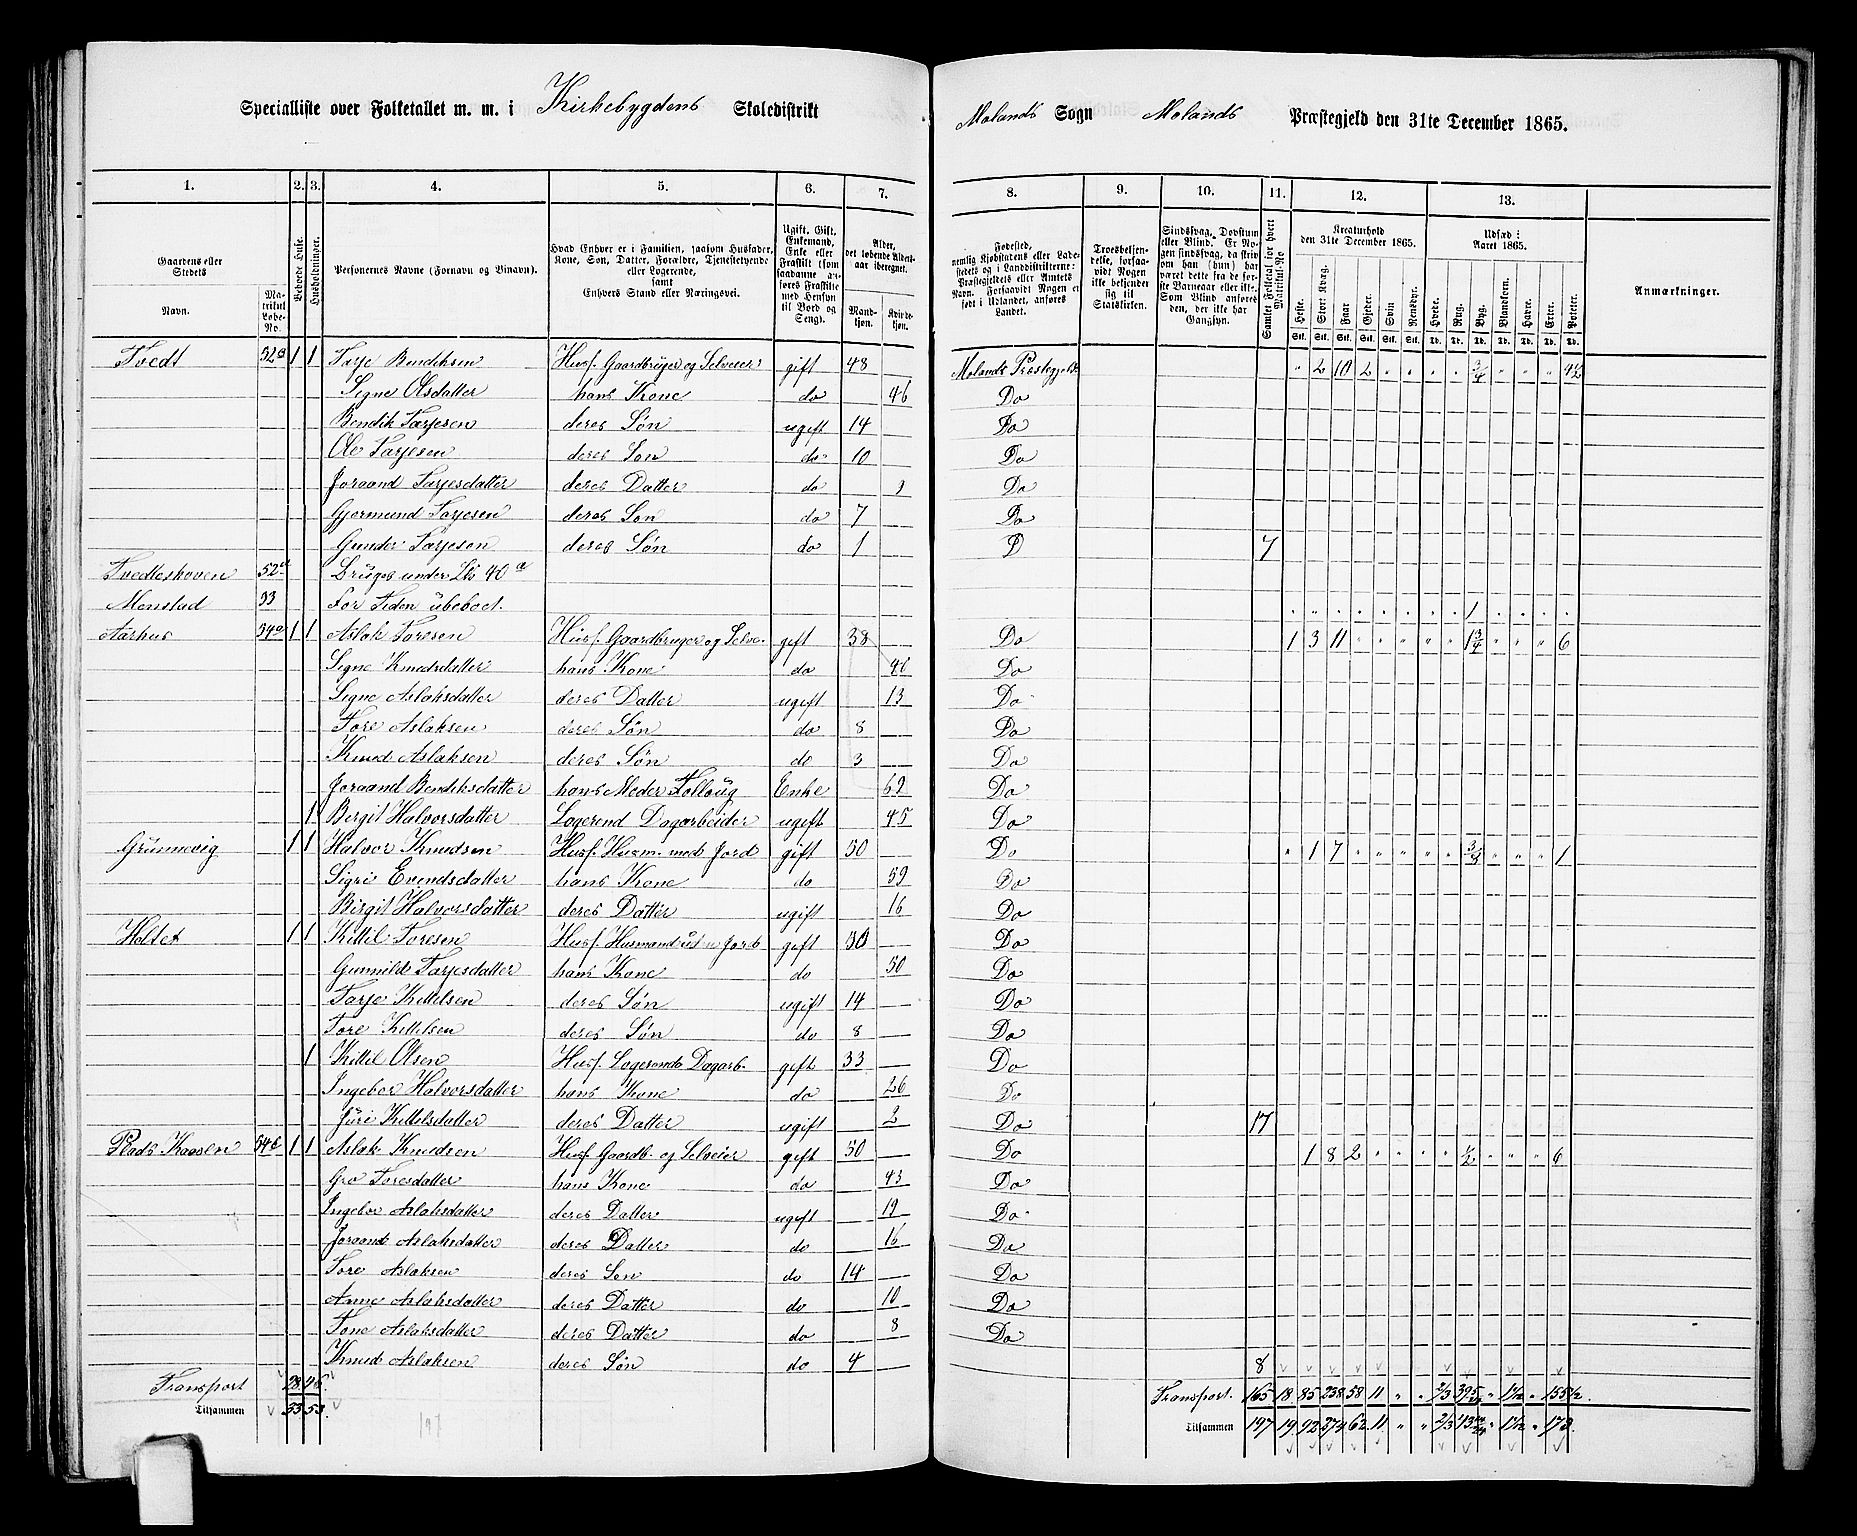 Specialliste over Folketallet m. m. i Kirkebygdens Skoledistrikt Molands Sogn Molands Præstegjeld den 31te December 1865.
1. 2. 3. 4. 5. 6. 7. 8. 9. 10. 11. 12. 13.
Gaardens eller Stedets Navn. Matrikul Løbe-No. Beboede Huse. Husholdninger. Personernes Navne (Fornavn og Tilnavn). Hvad Enhver er i Familien, saasom Husfader, Kone, Søn, Datter, Forældre, Tjenestetyende eller Logerende, samt Enhvers Stand eller Næringsvei. Ugift, Gift, Enkemand, Enke eller Fraskilt (som saadanne anføres Fraskilte med Hensyn til Bord og Seng). Alder, det løbende Aldersaar iberegnet. Mandkjøn. Kvindekjøn. Fødested, nemlig Kjøbstadens eller Ladestedets og i Landdistrikterne: Præstegjeldets eller Amtets Navn. Forsaavidt Nogen er født i Udlandet, anføres Landet. Troesbekjendelse, forsaavidt Nogen ikke bekjender sig til Statskirken. Sindssvag, Døvstum eller Blind. Er Nogen sindssvag, da skrives om han (hun) har været dette fra de første Barneaar eller ikke. Som Blind anføres den, der ikke har Gangsyn. Samlet Folketal for hvert Matrikul-No Kreaturhold den 31te December 1865. Heste. Stort Kvæg. Faar Gjeder. Svin Rensdyr. Udsæd i Aaret 1865. Hvede. Rug. Byg. Blandkorn. Havre. Erter. Poteter. Anmærkninger.
Tvedt 52a 1 1 Tarje Bendiksen Husf. Gaardbruger og Selveier gift 48 Molands Præstegjeld " 2 10 2 " " " " 3/4 " " " 4½
Signe Olsdatter hans Kone do 46 Do
Bendik Tarjesen deres Søn ugift 14 Do
Ole Tarjesen deres Søn do 10 Do
Joraand Tarjesdatter deres Datter do 9 Do
Gjermund Tarjesen deres Søn do 7 Do
Gunder Tarjesen deres Søn do 1 D 7
Tvedteshoven 52 Bruges under Lb 40a
Monstad 33 For Tiden ubeboet. 1
Aarhus 54a 1 1 Aslak Toresen Husf. Gaardbruger og Selve. gift 38 Do 1 3 11 " " " " " 1 3/4 " " " 6
Signe Knudsdatter hans Kone do 46 Do
Signe Aslaksdatter deres Datter ugift 13 Do
Tore Aslaksen deres Søn do 8 Do
Knud Aslaksen deres Søn do 3 Do
Joraand Bendiksdatter hans Moder Enke 69 Do
1 Birgit Halvorsdatter Logerend Dagarbeider ugift 45 Do
Grünnevig 1 1 Halvor Knudsen Husf. Husm. med Jord gift 50 Do " 1 7 " " " " " 3/4 " " " 1
Sigri Evendsdatter hans Kone do 59 Do
Birgit Halvorsdatter deres Datter ugift 16 Do
Holtet 1 1 Kittil Toresen Husf. Husmand ut n Jord gift 50 Do
Gunnild Tarjesdatter hans Kone do 50 Do
Tarje Kittelsen deres Søn ugift 14 Do
Tore Kittelsen deres Søn do 8 Do
1 Kittil Olsen Husf. Logerende Dagarb. gift 33 Do
Ingebor Halvorsdatter hans Kone do 26 Do
Jüri Kittelsdatter deres Datter ugift 2 Do 17
Plads Kaasen 54b 1 1 Aslak Knudsen Husf. Gaardb. og Selveier gift 50 Do 1 8 2 " " " " ½ " " " 6
Gro Toresdatter hans Kone do 43 Do
Ingebor Aslaksdatter deres Datter ugift 19 Do
Joraand Aslaksdatter deres Datter do 16 Do
Tore Aslaksen deres Søn do 14 Do
Anne Aslaksdatter deres Datter do 10 Do
Tone Aslaksdatter deres Datter do 8 Do
Knud Aslaksen deres Søn do 4 8
Transport 28 46. Transport. 165 18 85 238 58 11 " " 2/3 " 1½ " 155½
Tilsammen 33 53. 197 Tilsammen 197 19 92 274 62 11 " " 2/3 " 1½ " 173